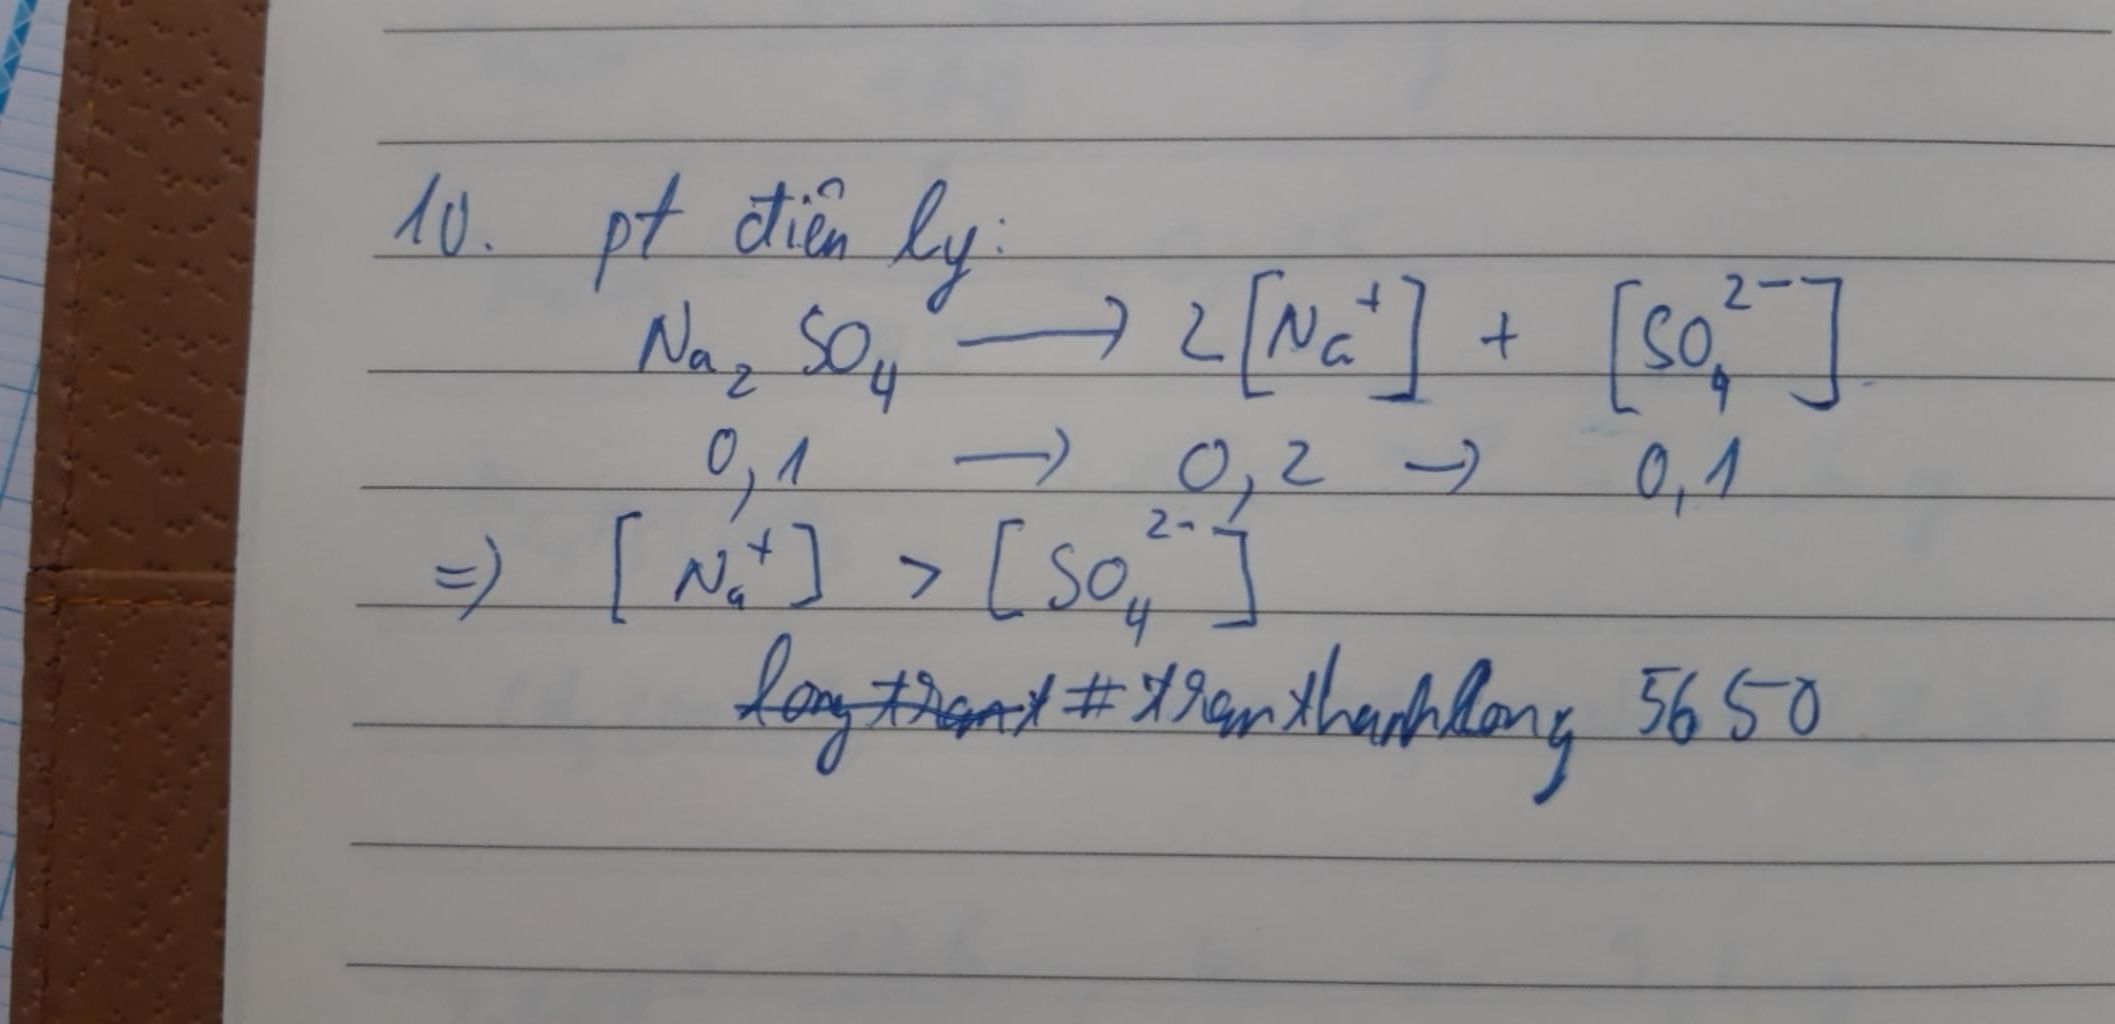 10. pt điên ly:
Na₂SO₄ ⟶ 2[Na⁺] + [SO₄²⁻]
0,1 → 0,2 → 0,1
=> [Na⁺] > [SO₄²⁻]
# tranthanhlong 5650